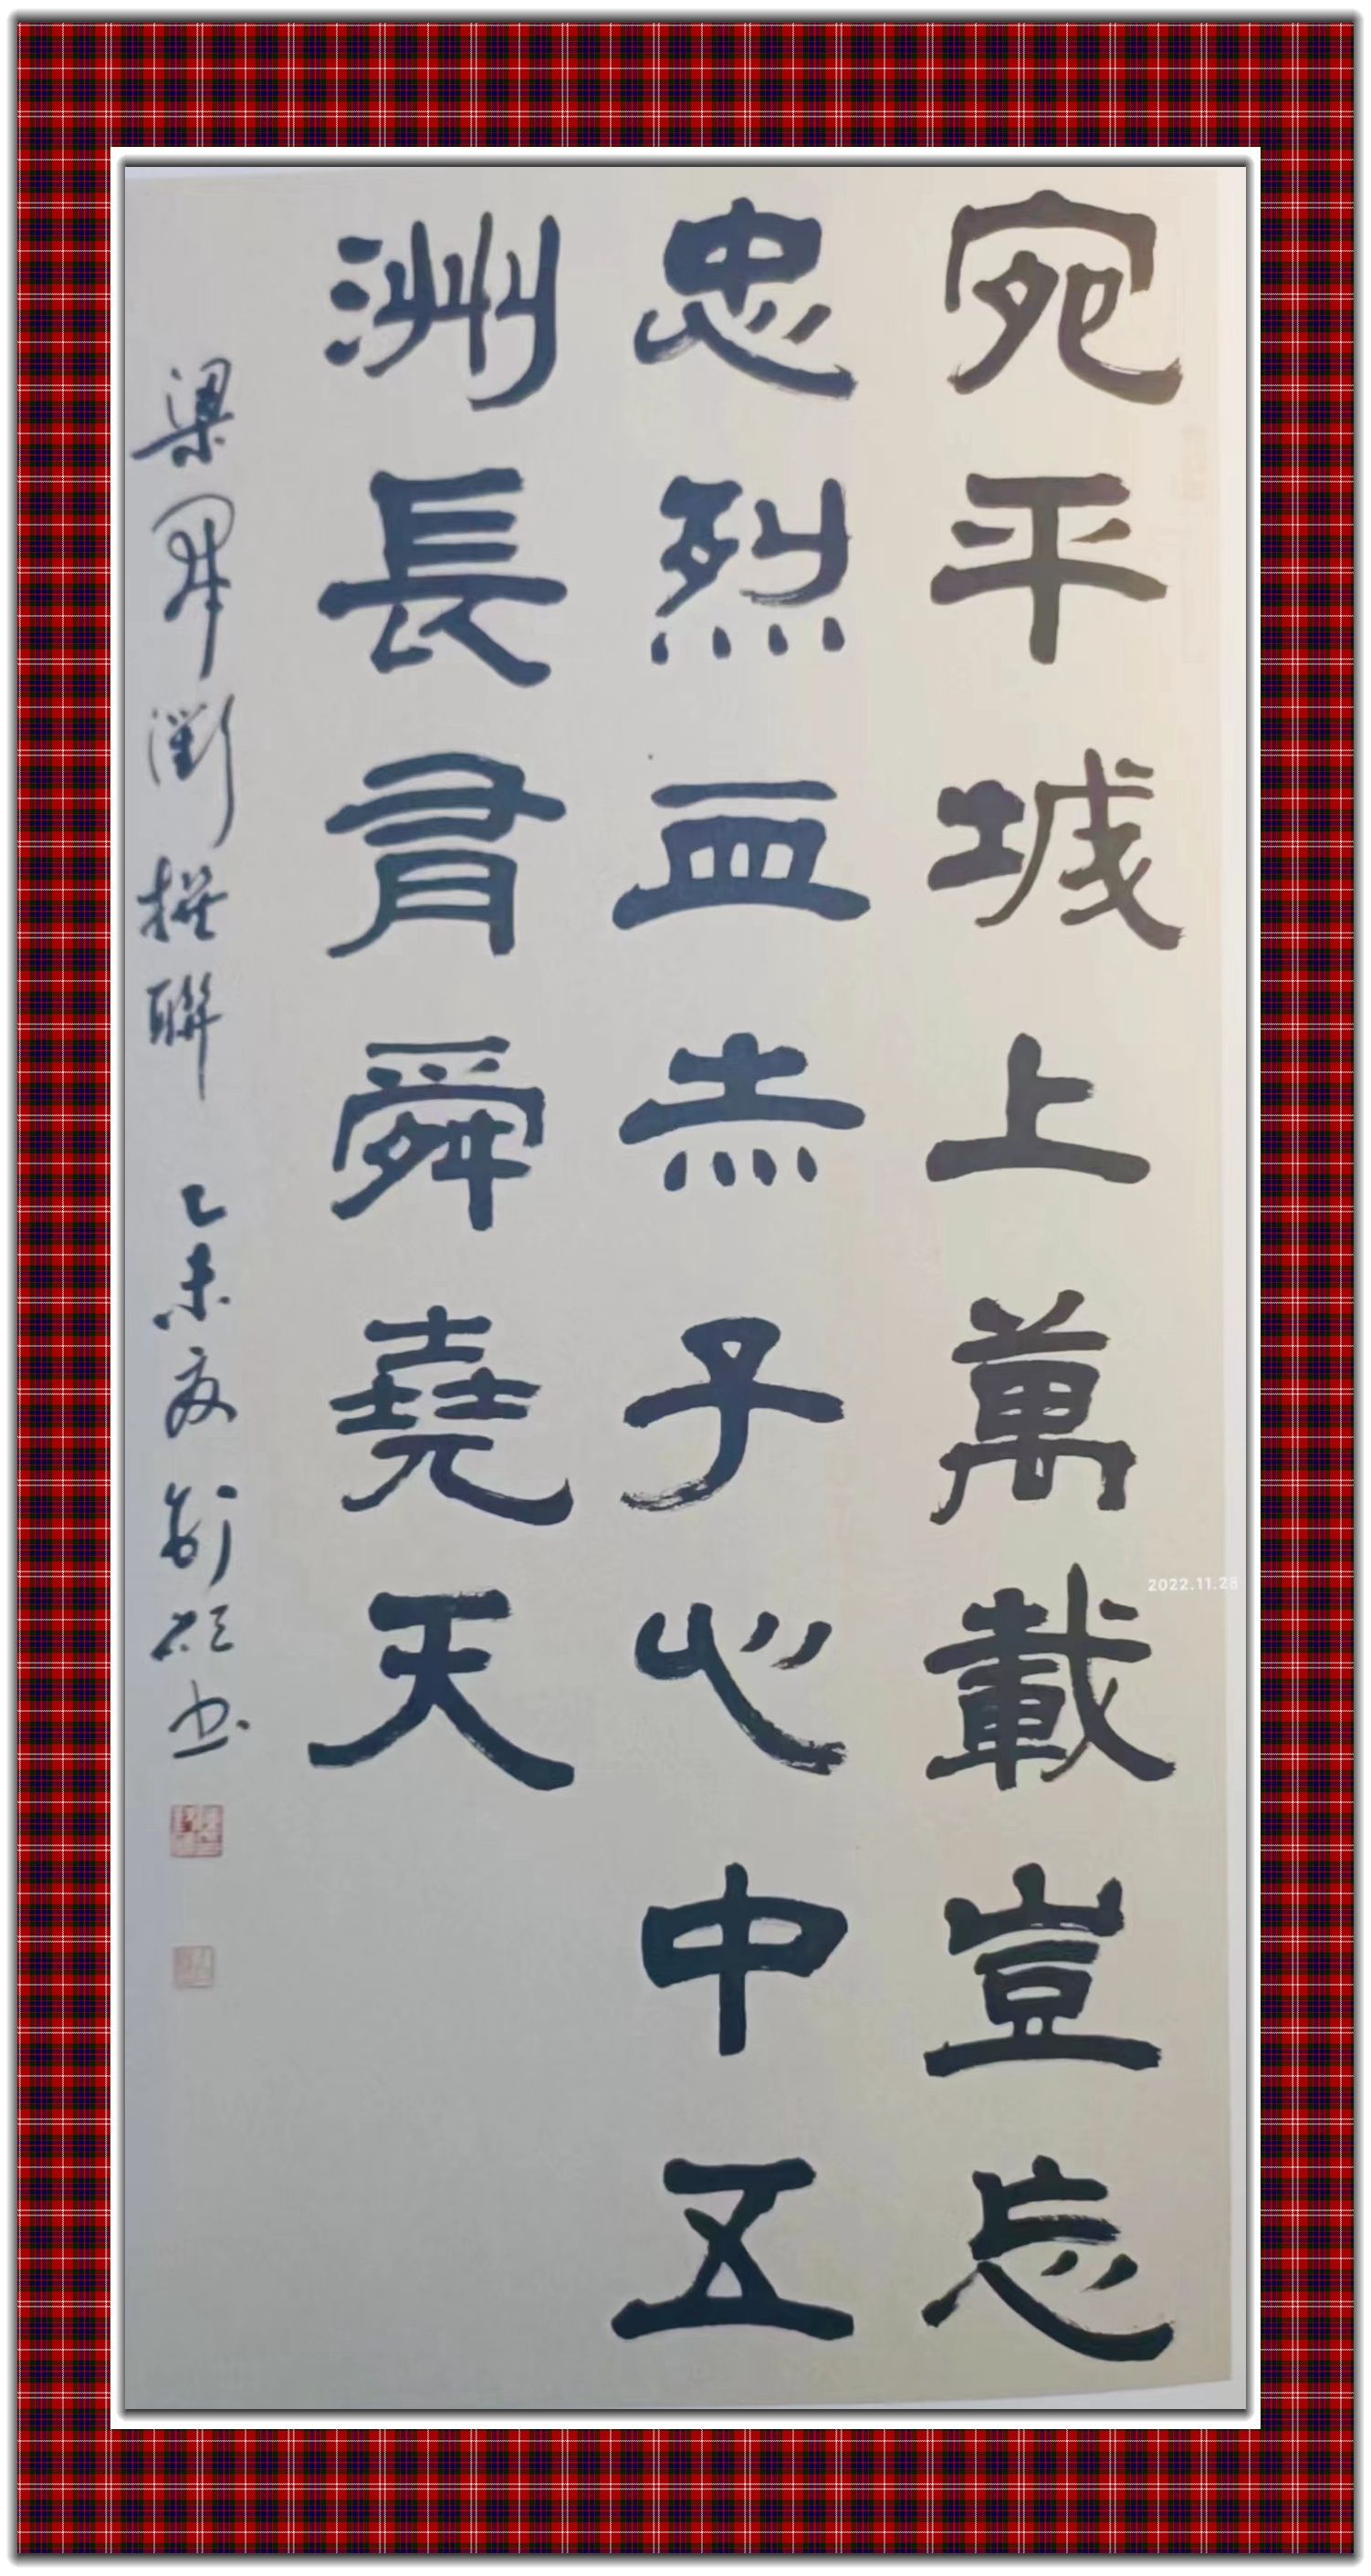 宛平城上萬載豈忘
忠烈血赤子心中五
洲長有舜堯天
梁 衡撰聯 乙未夏 書
2022.11.28